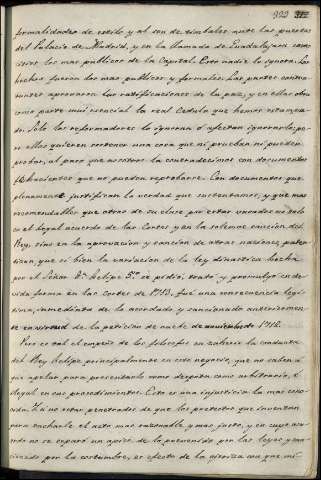 399 312
formalidades de estilo y al son de timbales ante las puertas
del Palacio de Madrid, y en la llamada de Guadalajara como
sitios los mas publicos de la Capital. Esto nadie lo ignora. Los
hechos fueron los mas publicos y formales. Las partes contra-
tantes aprovaron las ratificaciones de la paz, y en ellas obra
como parte mui esencial la real Cedula que hemos estampa-
do. Solo los reformadores lo ignoran ó afectan ignorarlo; pe-
ro ellos quieren sostener una cosa que ni prueban ni pueden
probar, al paso que nosotros la contradecimos con documentos
fehacientes que no pueden reprobarse. Con documentos que
plenamente justifican la verdad que sustentamos, y que mas
recomendables que otros de su clase por estar vaciados no solo
en el legal acuerdo de las Cortes y en la solemne sancion del
Rey, sino en la aprovacion y sancion de otras naciones, paten-
tizan que si bien la variacion de la ley dinastica hecha
por el Señor Dn. Felipe 5º se pidió, trató y promulgó en de-
vida forma en las Cortes de 1713, fué una consecuencia legi-
tima, inmediata de lo acordado y sancionado anteriormen-
te en virtud de la peticion de nueve de noviembre de 1712.
Pero es tal el empeño de los filosofos en zaherir la conducta
del Rey Felipe principalmente en este negocio, que no saben á
que apelar para presentarlo como despota como arbitrario, é
ilegal en sus procedimientos. Esto es una injusticia la mas cono-
cida. Ya no estar penetrados de que los pretextos que inventan
para tacharle el acto mas razonable y mas justo, y en cuyo acu-
erdo no se separó un apice de lo prevenido por las leyes y san-
cionado por la costumbre, es efecto de la ojeriza con que mi-